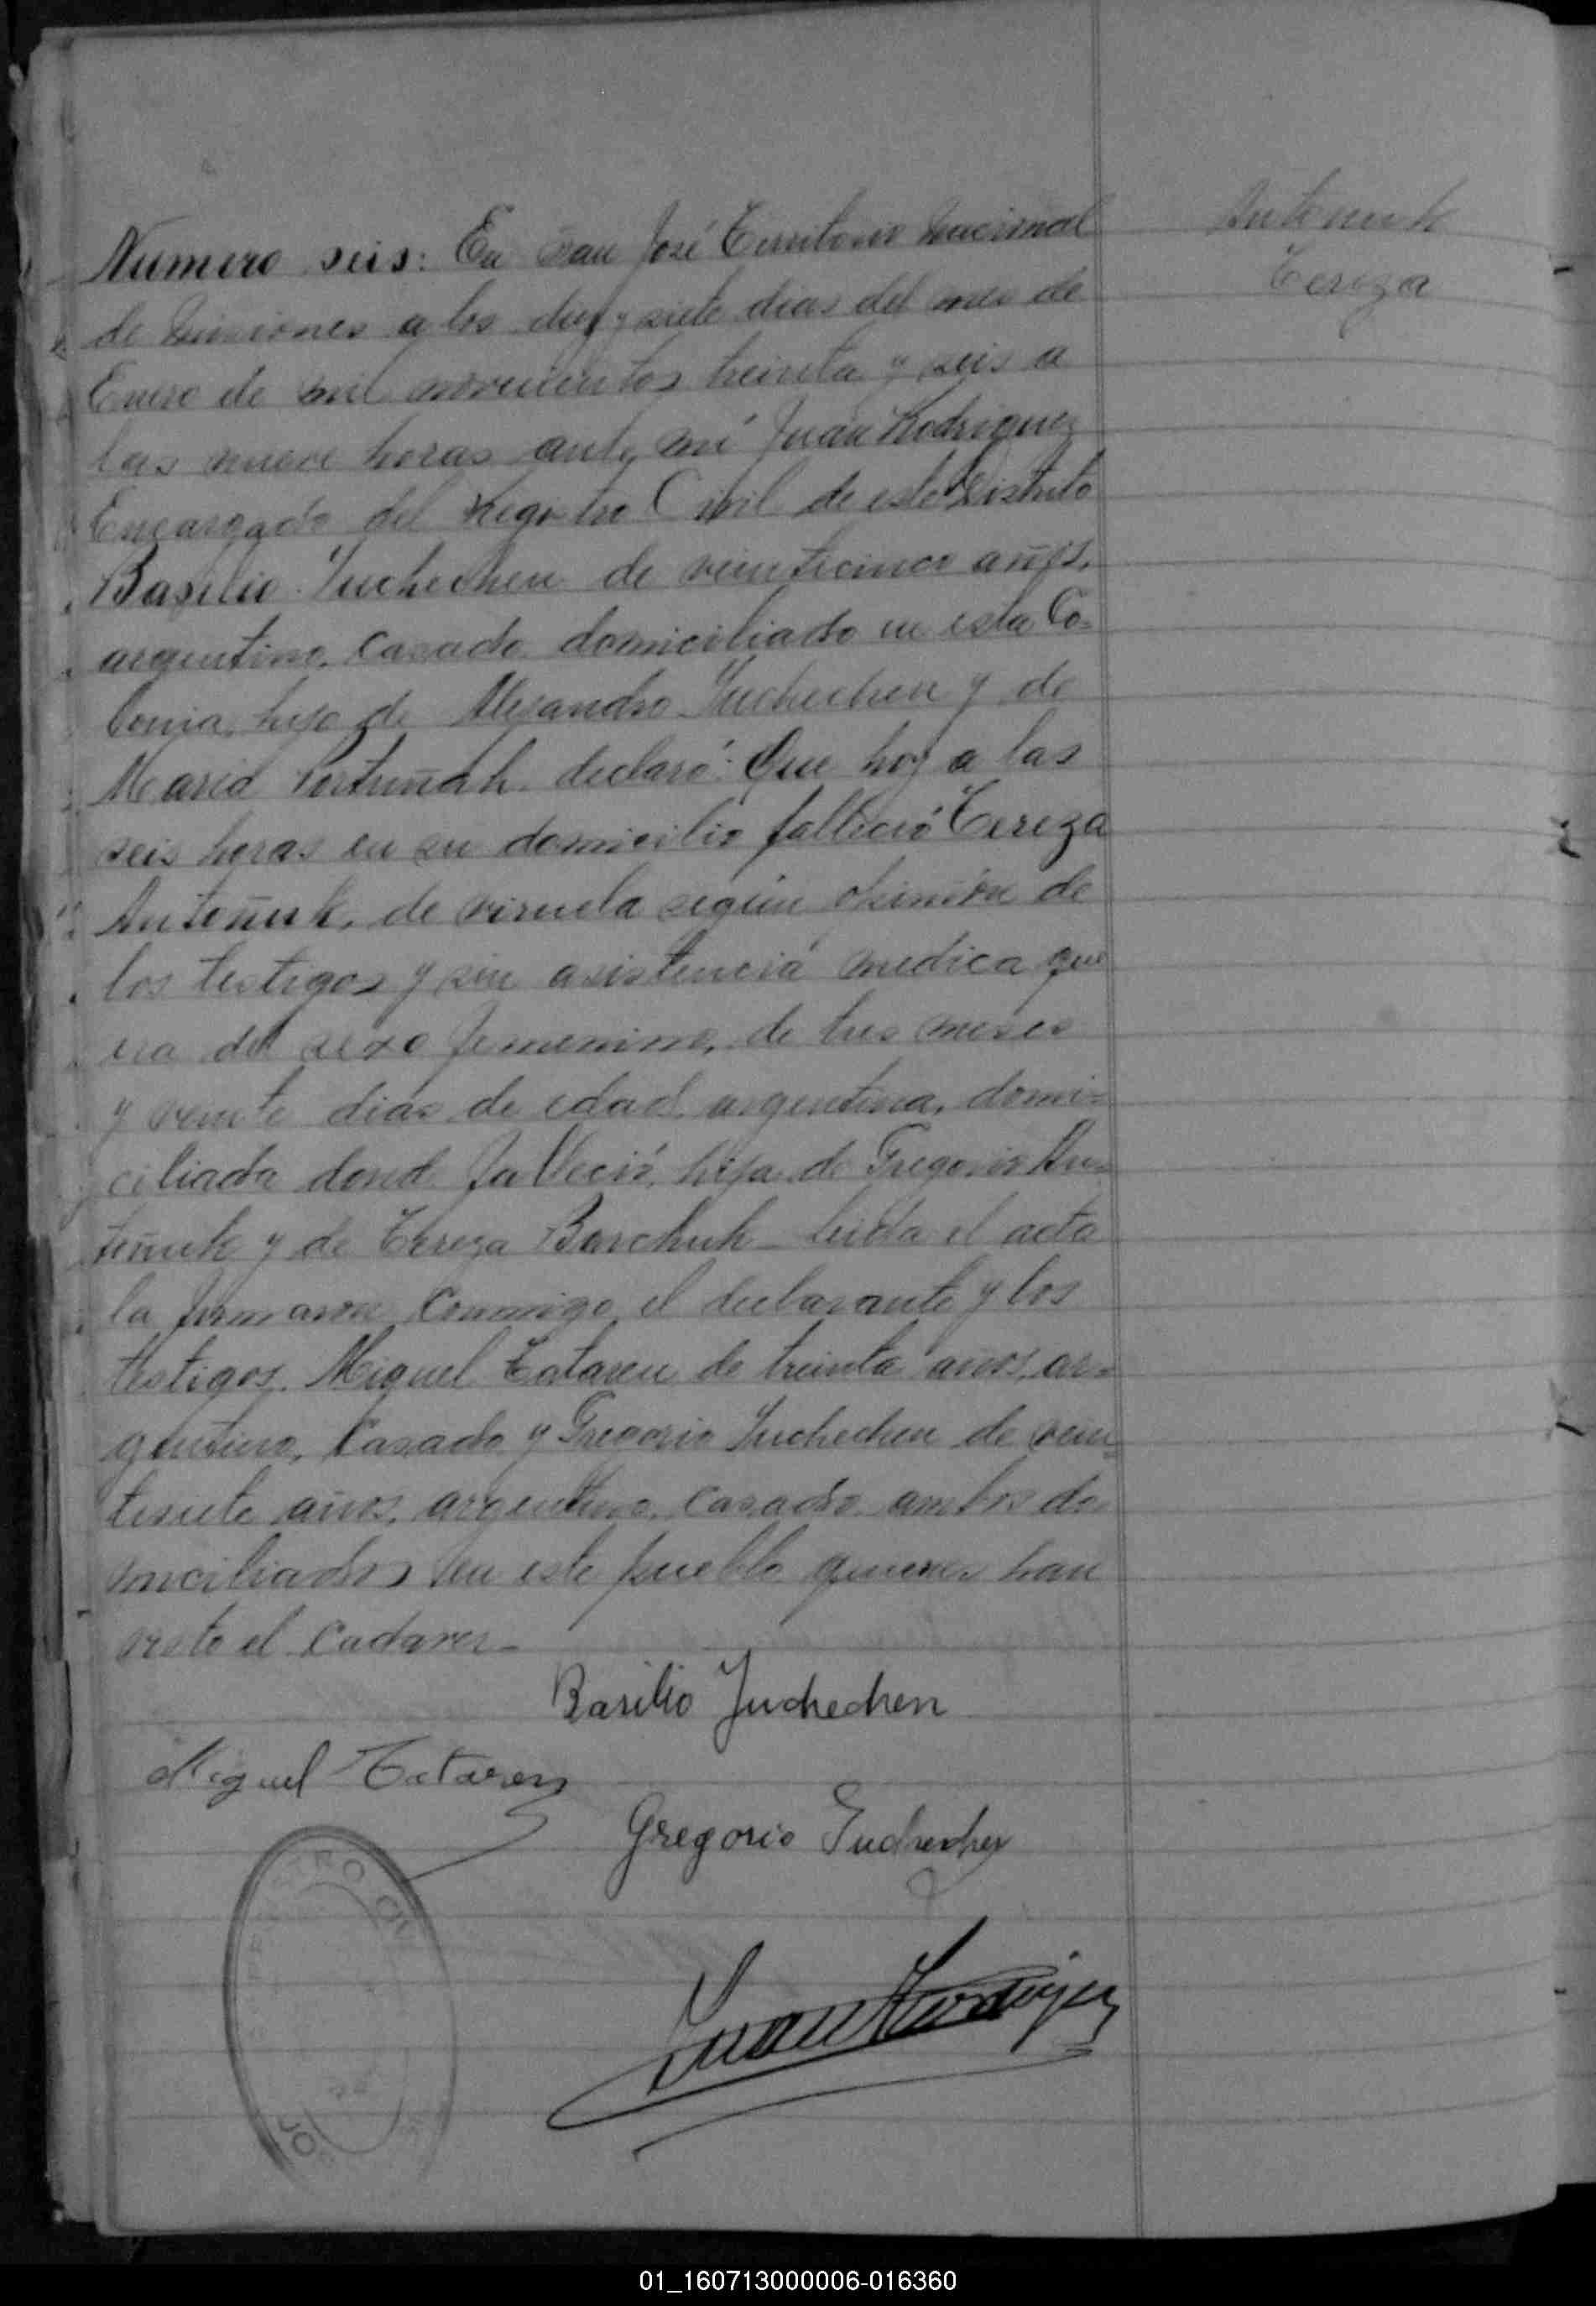 Antoniuk
Tereza
Numero seis: En San José Territorio Nacional
de Misiones a los diez y siete dias del mes de
Enero de mil novecientos treinta y seis a
las nueve horas ante mi Juan Rodriguez
Encargado del Registro Civil de este Distrito
Basilio Juchechen de veinticinco años,
argentino, casado domiciliado en esta Co-
lonia, hijo de Alejandro Juchechen y de
Maria declaró: Que hoy a las
seis horas en su domicilio falleció Tereza
Antoñuk, de viruela según opinión de
los testigos y sin asistencia medica que
era del sexo femenino, de tres meses
y veinte dias de edad argentina, domi-
ciliada dond falleció, hija de Gregorio An-
toñuk y de Tereza Barchuk leida el acta
la firmaron conmigo el declarante y los
testigos Miguel Tataren de treinta años, ar-
gentino, casado y Gregorio Juchechen de vein-
tisiete años, argentino, casado ambos do-
miciliados en este pueblo quienes han
visto el cadaver-
Basilio Juchechen
Miguel Tataren
Gregorio Juchechen
Juan Rodriguez
01_160713000006-016360